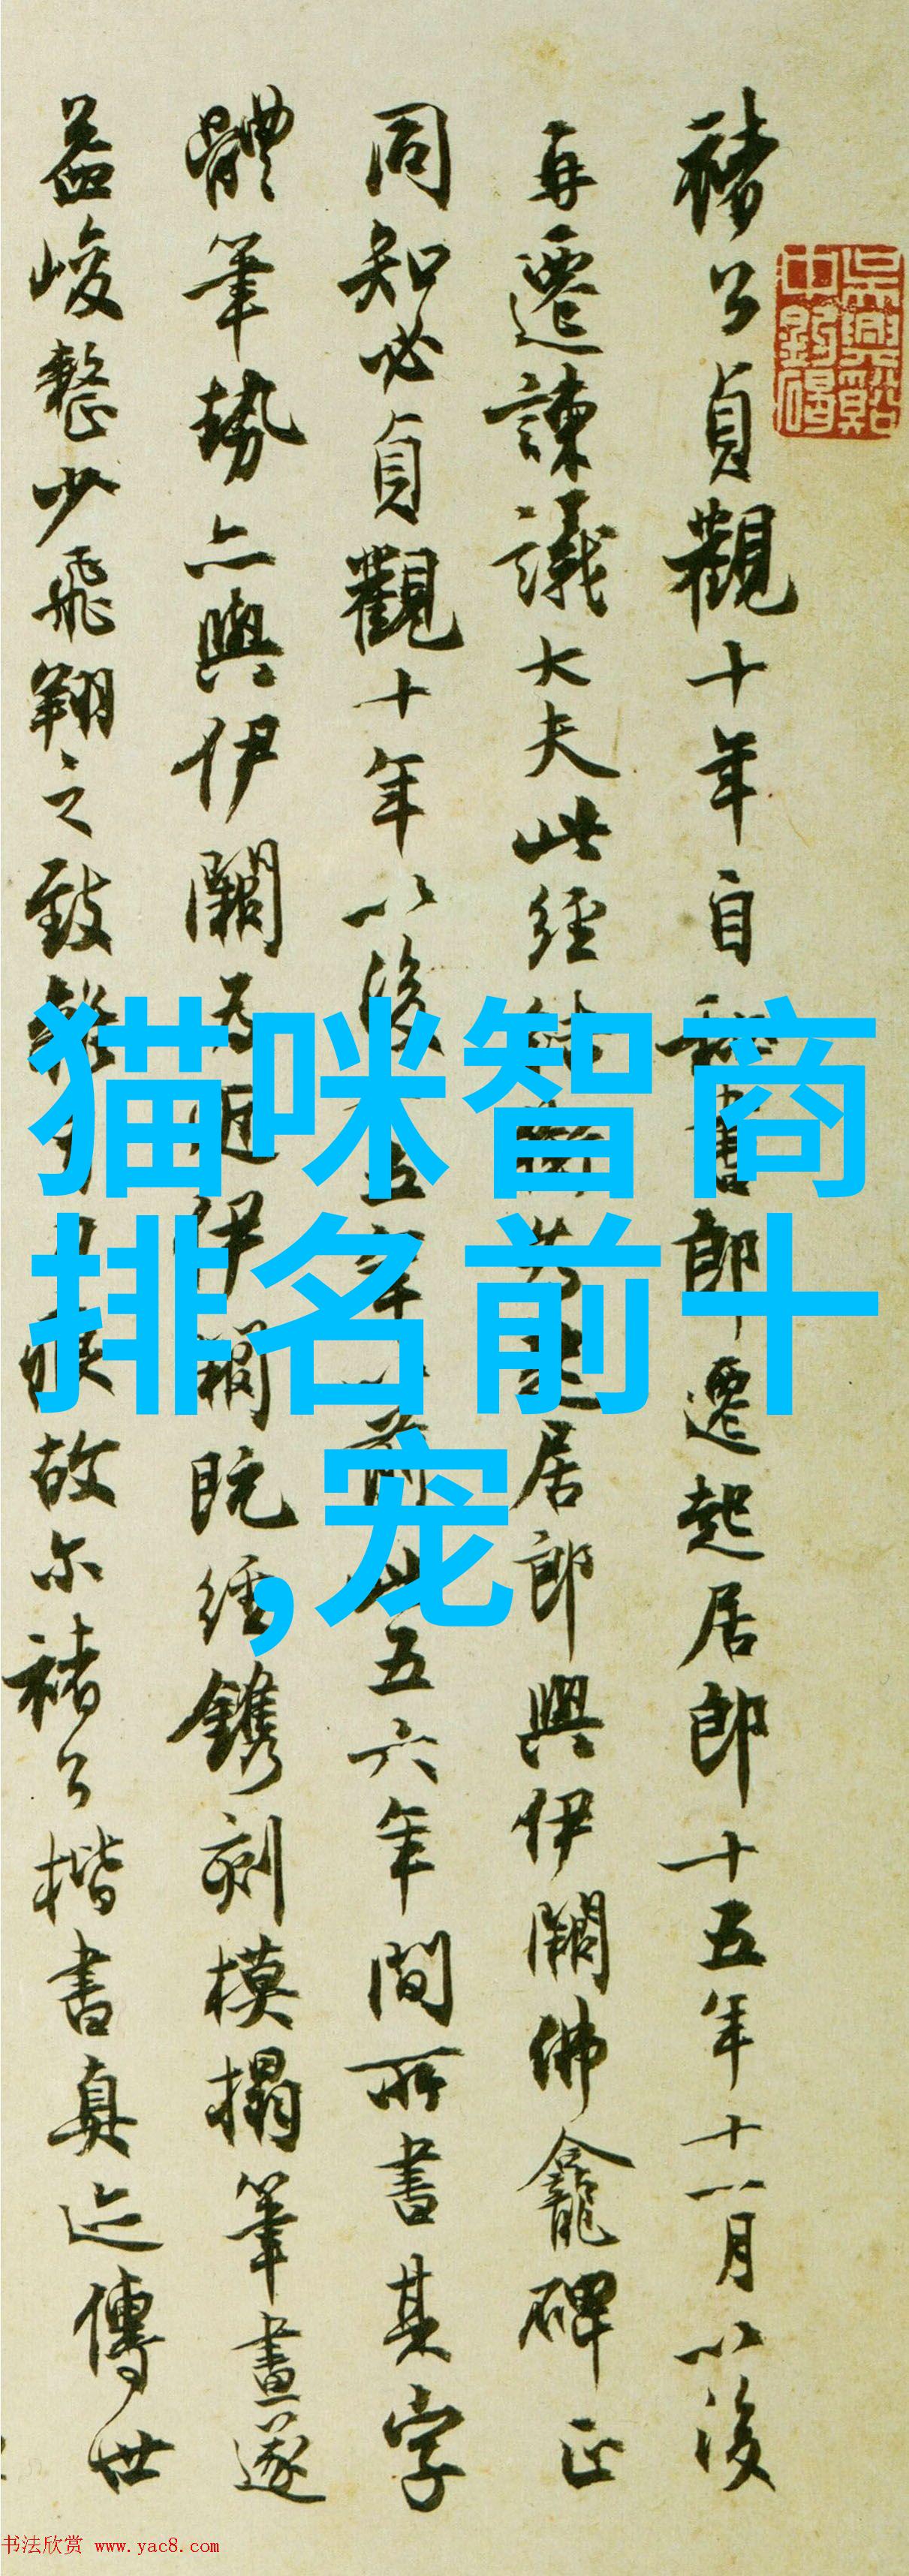 褚公貞觀十年自秘書郎遷起居郎十五年十一月以後
再遷諫議大夫此經結居郎與伊闕佛龕碑正
同知必貞觀十年以後五年以前此五六年間所書其字
體筆勢亦與伊闕為近伊闕既經鐫刻模搨筆畫遂
益峻整少飛翔之致故尔褚公楷書真迹傳世
猫咪智商
排名前十
,宠
书法欣赏 www.yac8.com